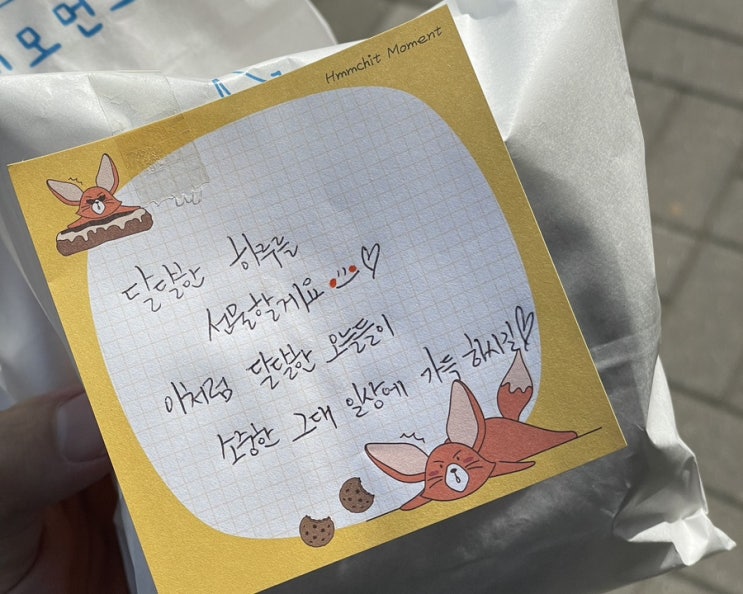 모먼
Hmmchit Moment
달달한 하루를
선물할게요
이처럼 달달한 오늘들이
소중한 그대 일상에 가득 하시길